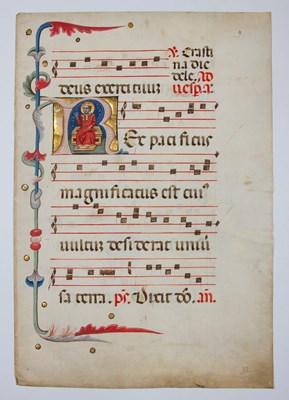 ℣. Crasti
na die
dele. Ad
deus exercituum uesp. a.
Rex pacificus
magnificatus est cui⁹
uultuz desiderat uniu̅
sa terra. ps. Dixit do̅. an̅.